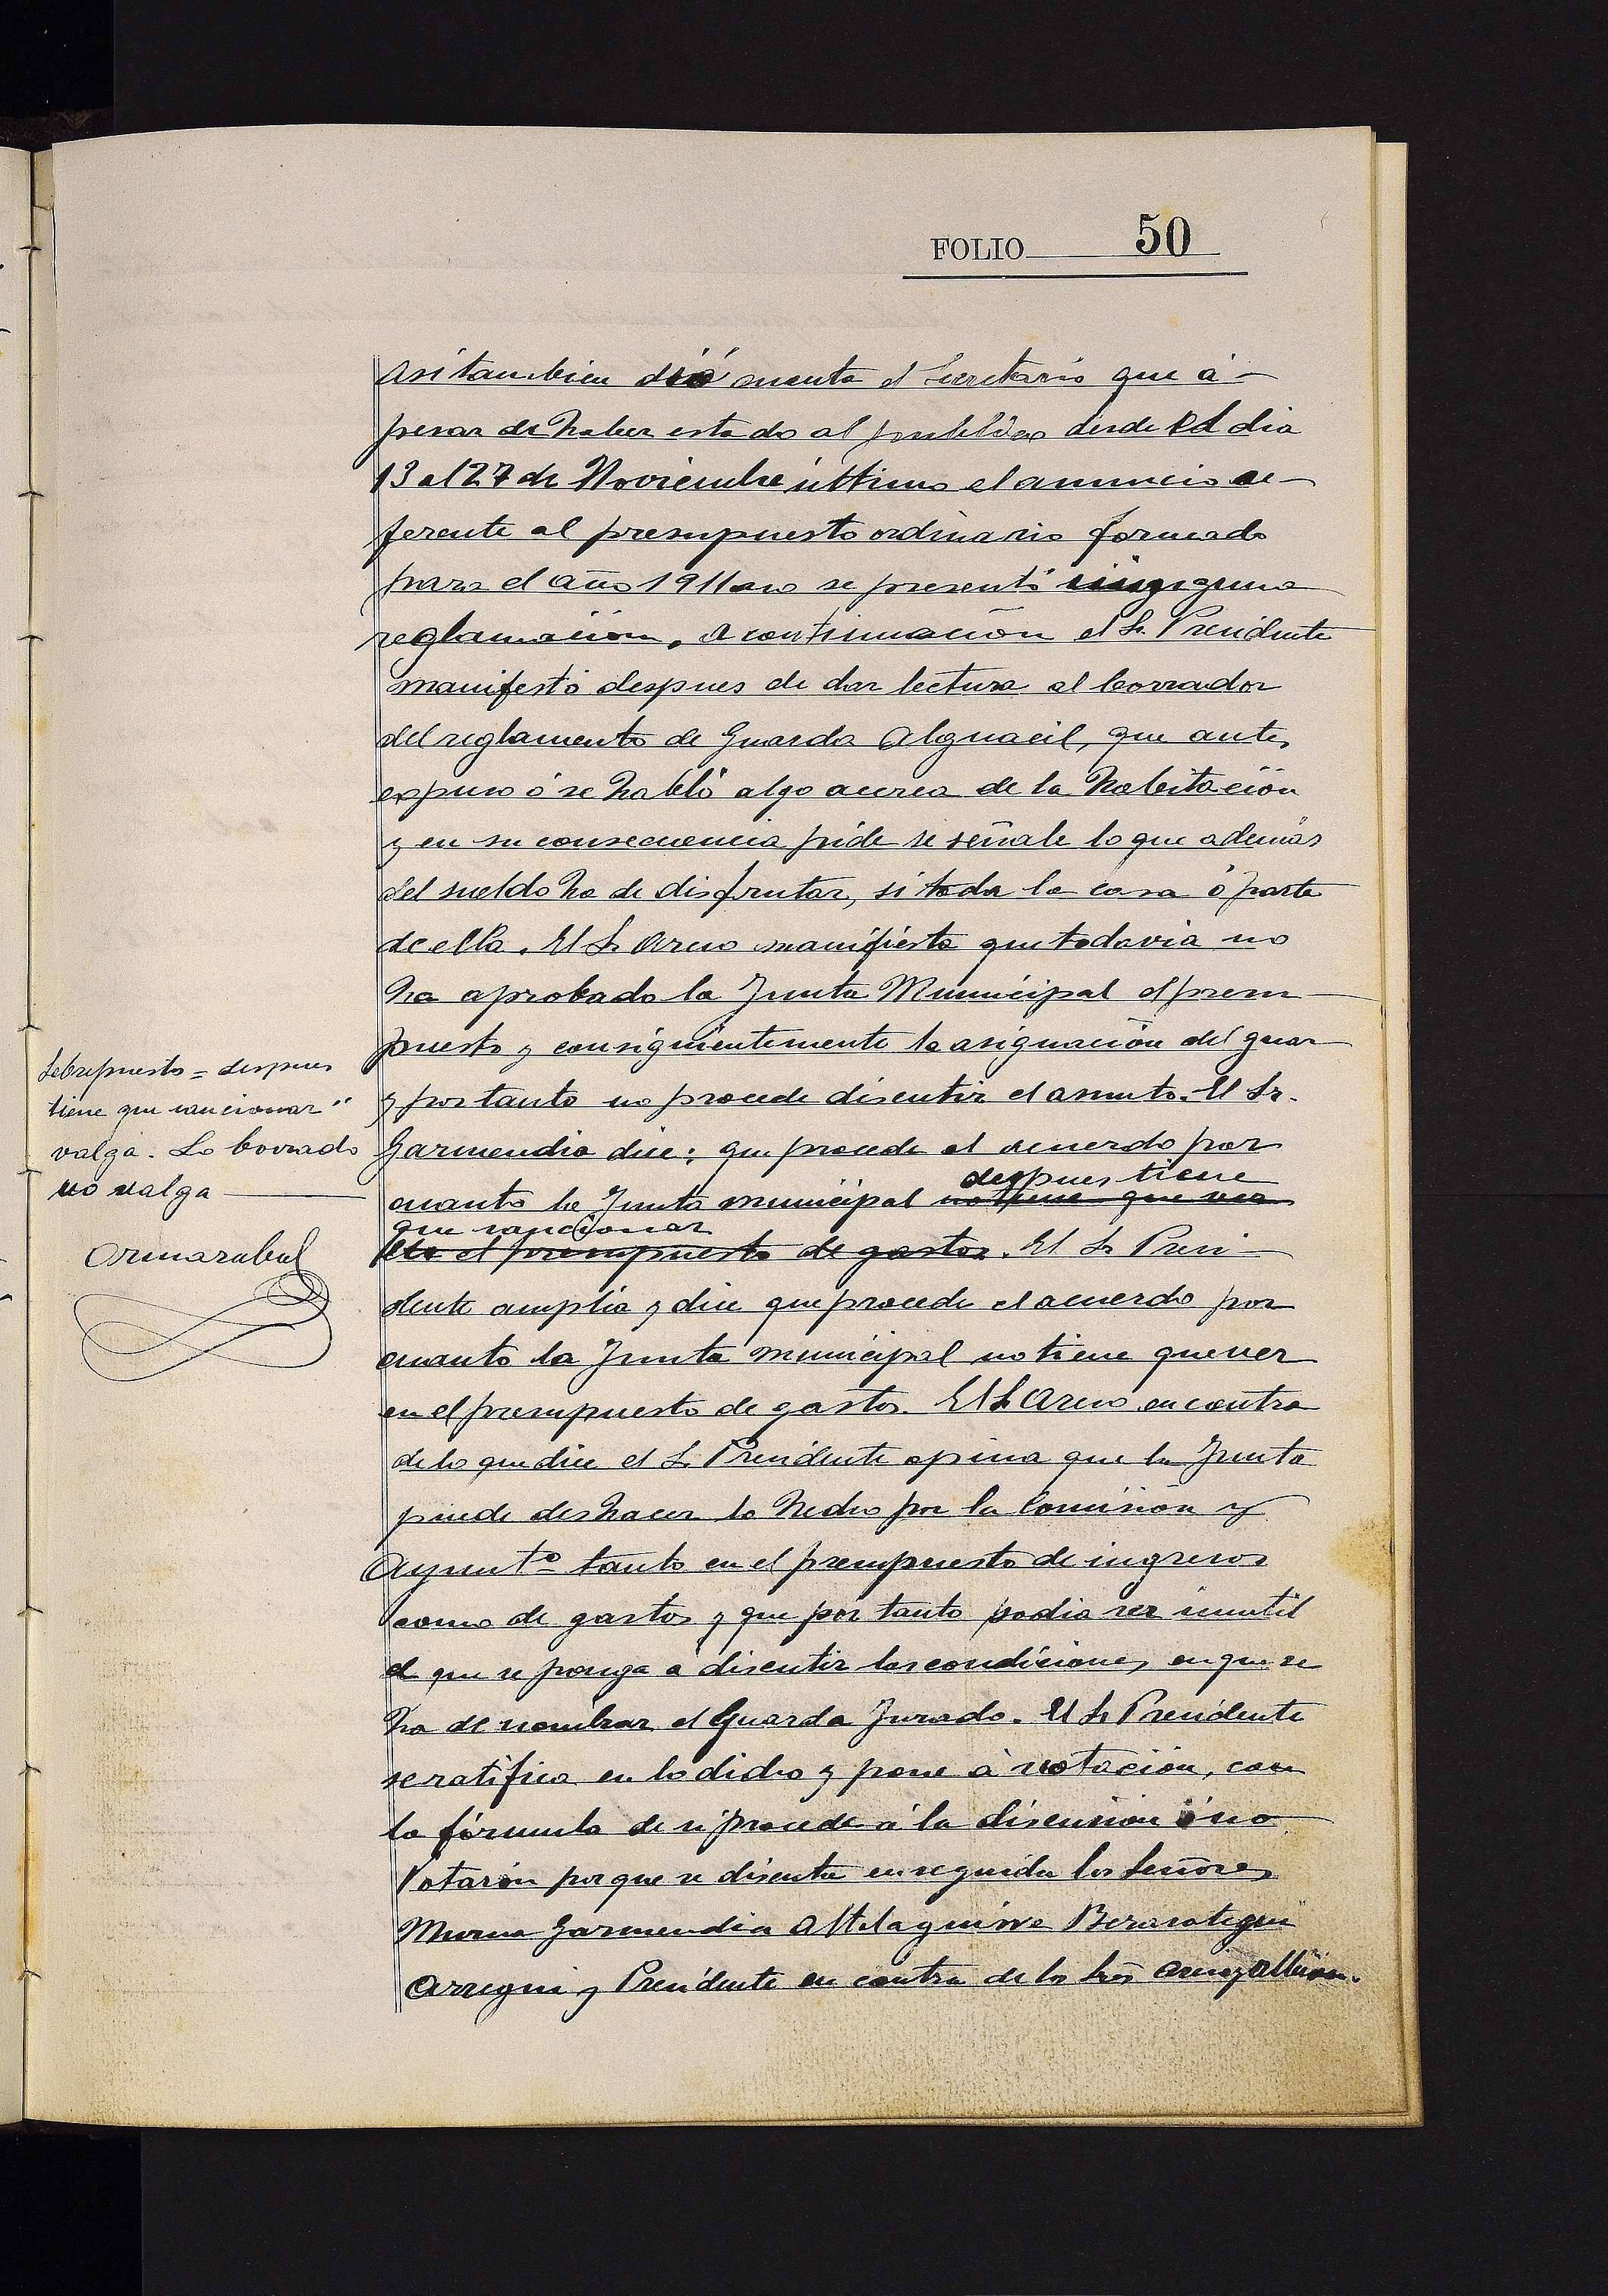 FOLIO 50
asi tambien dió cuenta el Secretario que á
pesar de haber estado al publico desde el dia
13 al 27 de Noviembre último el anuncio re-
ferente al presupuesto ordinario formado
para el año 1911 no se presentó ninguna
reglamación. A continuación el Sr. Presidente
manifestó despues de dar lectura al borrador
del reglamento de Guarda Alguacil, que antes
expuso ó se habló algo acerca de la habitación
y en su consecuencia pide se señale lo que además
del sueldo ha de disfrutar, si toda la casa ó parte
de ella. El Sr Areso manifiesta que todavia no
ha aprobado la Junta Municipal el presu-
puesto y consiguientemente la asignación del guar
y por tanto no procede discutir el asunto. El Sr.
Garmendia dice: que procede el acuerdo por
despues tiene
cuanto la Junta municipal no tiene que ver
que sancionar
el presupuesto de gastos. El Sr Presi-
dente amplia y dice que procede el acuerdo por
cuanto la Junta municipal no tiene que ver
en el presupuesto de gastos. El Sr Areso en contra
de lo que dice el Sr Presidente opina que la Junta
puede deshacer lo hecho por la Comisión y
Ayuntº tanto en el presupuesto de ingresos
como de gastos y que por tanto podia ser inutil
el que se ponga a discutir las condiciones en que se
ha de nombrar el Guarda Jurado. El Sr Presidente
se ratifica en lo dicho y pone á votación, con
la fórmula de si procede á la discusion ó no
Votarón por que se discuta enseguida los Señores
Murua Garmendia Altolaguirre Berasategui
Arregui y Presidente en contra de los Sres Areso y
Sobrepuesto = despues
tiene que sancionar"
valga. Lo borrado
no valga